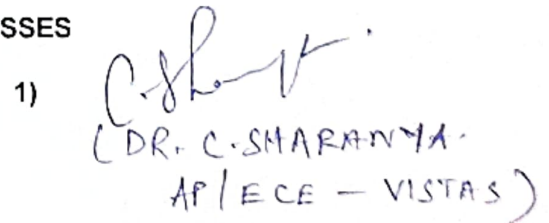 SSES
1) C. Sha
(DR. C. SHARANYA.
AP / ECE - VISTAS)